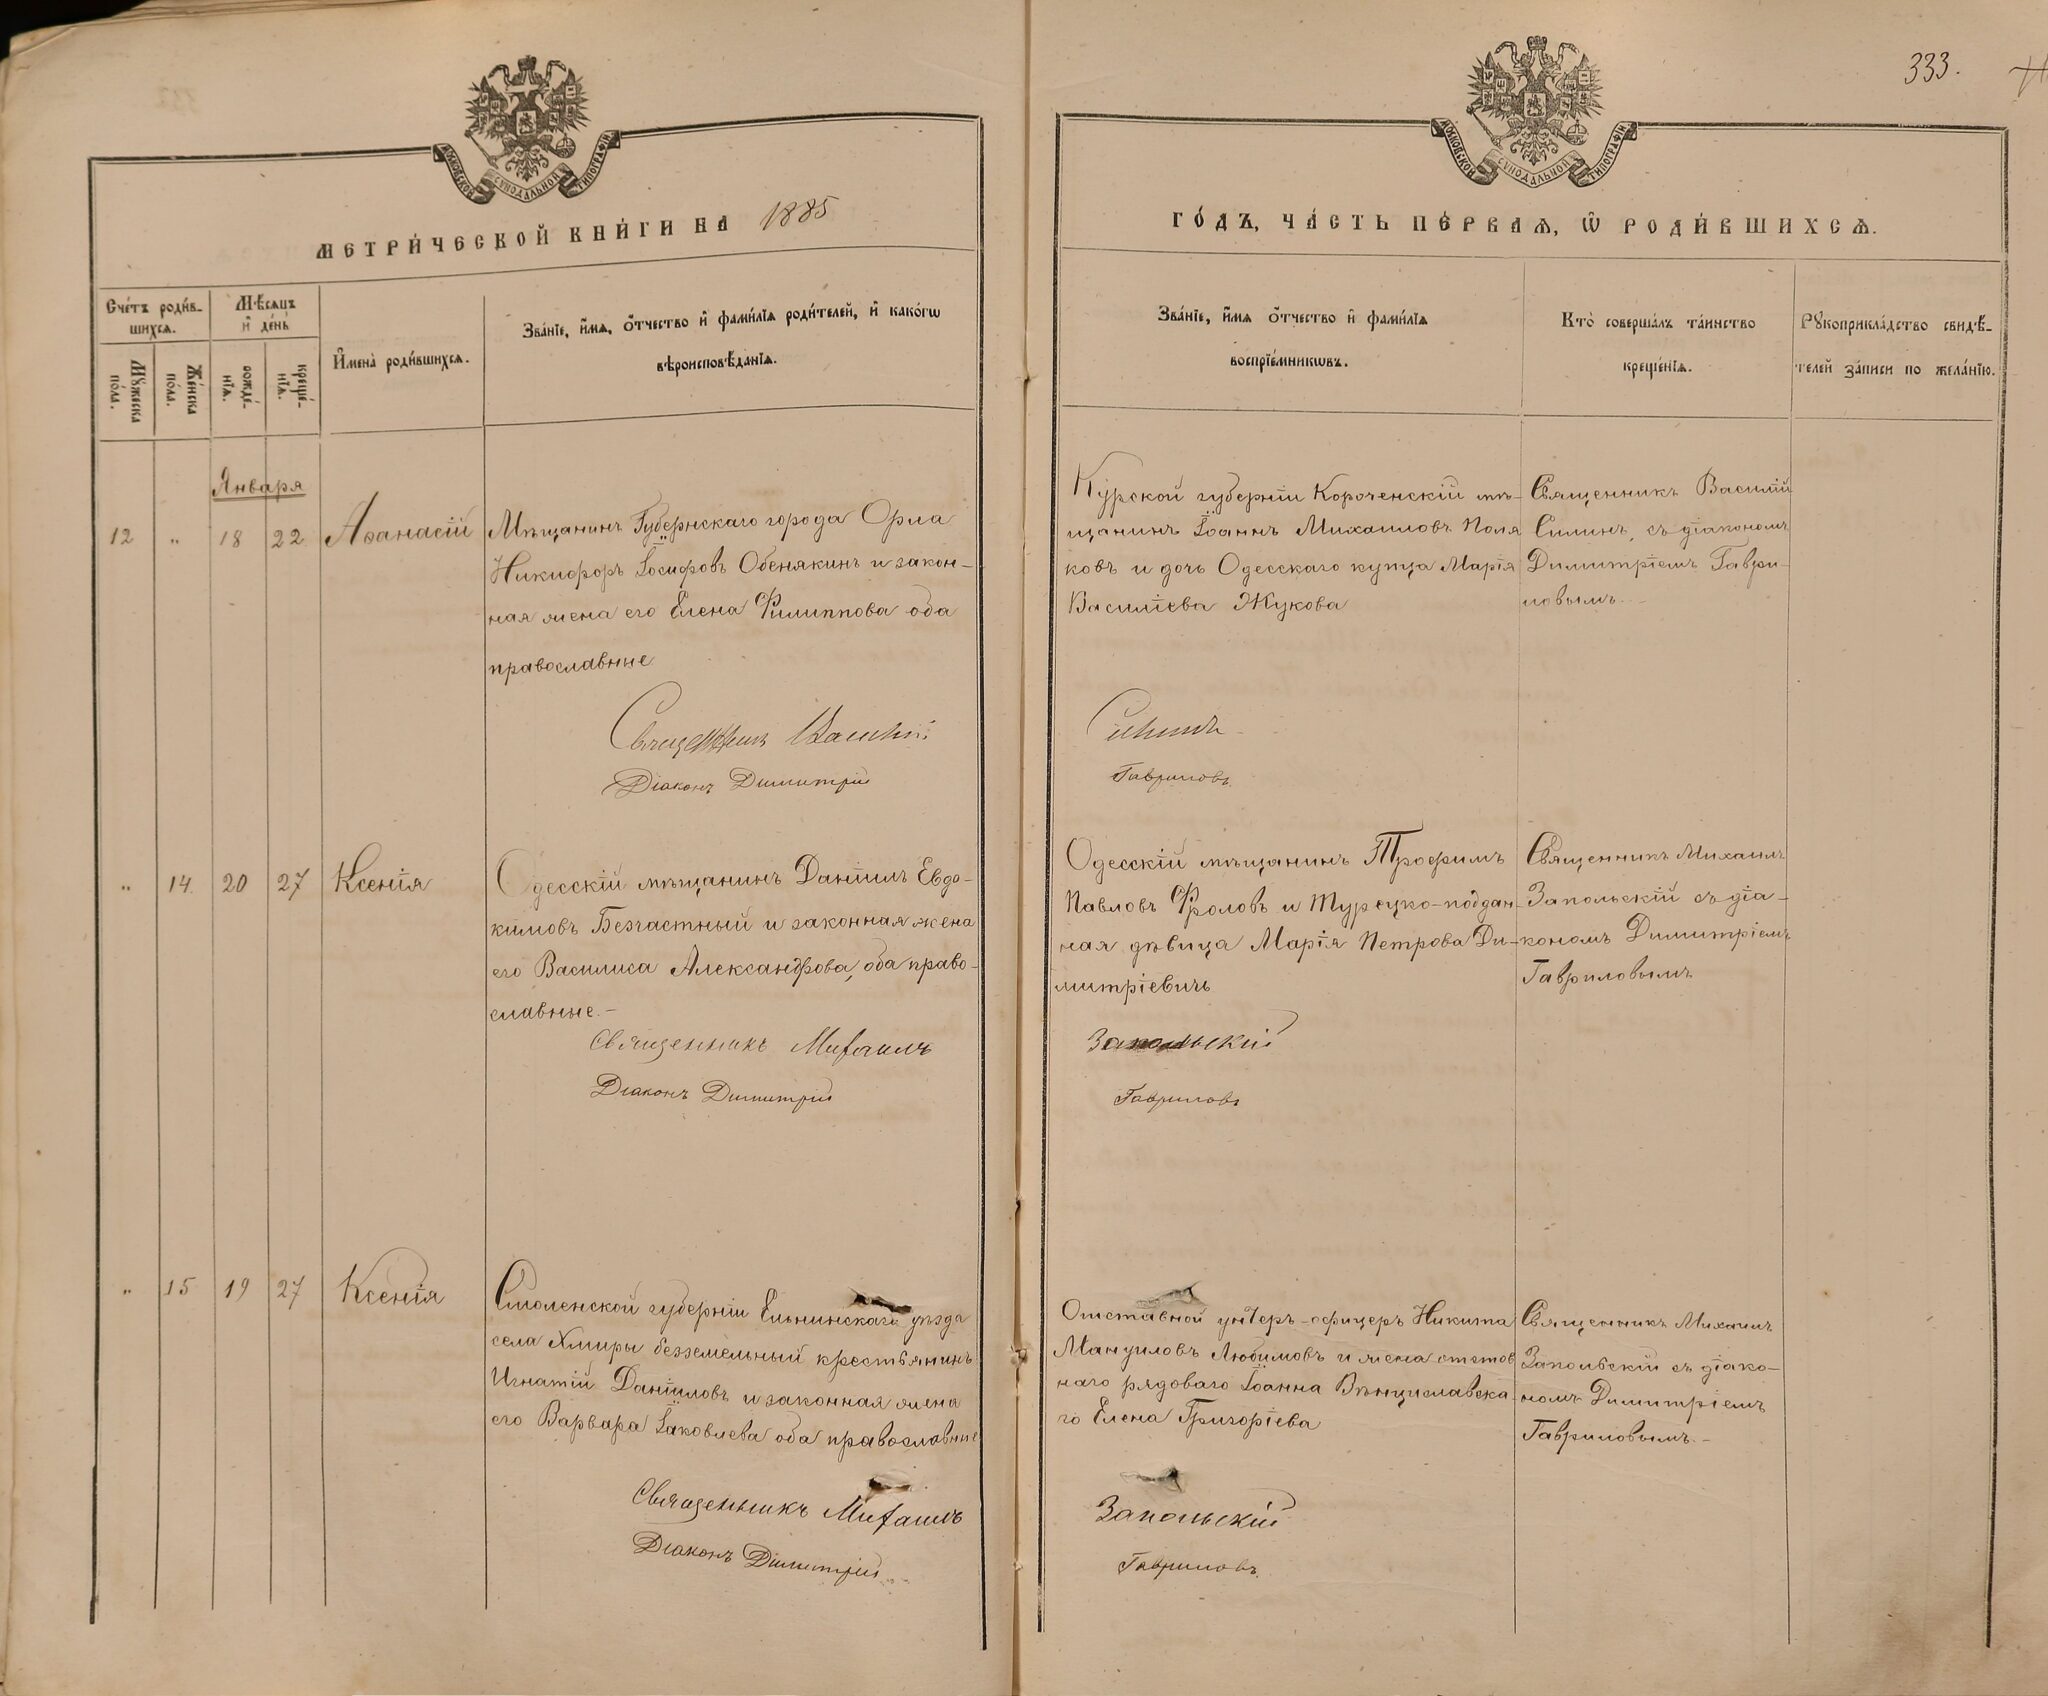 333.
МОСКОВСКОЙ СУНОДАЛЬНОЙ ТИПОГРАФІИ
МОСКОВСКОЙ СУНОДАЛЬНОЙ ТИПОГРАФІИ
МЕТРИ́ЧЕСКОЙ КНИ́ГИ НА 1885
ГО́ДЪ, ЧА́СТЬ ПЕ́РВАѦ, Ѡ РОДИ́ВШИХСѦ.
Сче́тъ роди́в-
шихсѧ.
Мѣ́сѧцъ
и҆ де́нь
Мꙋ́жеска
по́ла.
Же́нска
по́ла.
рожде́-
нїѧ.
креще́-
нїѧ.
И҆мена̀ роди́вшихсѧ.
Зва́нїе, и҆́мѧ, ѻ҆́тчество и҆ фами́лїѧ роди́телей, и҆ како́гѡ
вѣроисповѣ́данїѧ.
Зва́нїе, и҆́мѧ ѻ҆́тчество и҆ фами́лїѧ
воспрїе́мникѡвъ.
Кто̀ соверша́лъ та́инство
креще́нїѧ.
Рꙋкоприкла́дство свидѣ́-
телей за́писи по жела́нїю.
Января
12 " 18 22 Аѳанасій
Мѣщанинъ Губернскаго города Орла
Никифоръ Іосифовъ Обенякинъ и закон-
ная жена его Елена Филиппова оба
православные
Священникъ Василій
Діаконъ Димитрій
Курской губерніи Короченскій мѣ-
щанинъ Іоаннъ Михаиловъ Поля
ковъ и дочь Одесскаго купца Марія
Василіева Жукова
Силинъ
Гавриловъ
Священникъ Василій
Силинъ, съ діакономъ
Димитріемъ Гаври-
ловымъ.
" 14. 20 27 Ксенія
Одесскій мѣщанинъ Даніилъ Евдо-
кимовъ Безчастный и законная жена
его Василиса Александрова, оба право-
славные.-
Священникъ Михаилъ
Діаконъ Димитрій
Одесскій мѣщанинъ Трофимъ
Павловъ Фроловъ и Турецко-поддан-
ная дѣвица Марія Петрова Ди-
митріевичъ
Запольскій
Гавриловъ
Священникъ Михаилъ
Запольскій съ діа-
кономъ Димитріемъ
Гавриловымъ
" 15 19 27 Ксенія
Смоленской губерніи Ельнинскаго уѣзда
села Хмиры безземельный крестьянинъ
Игнатій Даніиловъ и законная жена
его Варвара Іаковлева оба православные
Священникъ Михаилъ
Діаконъ Димитрій
Отставной унтеръ-офицеръ Никита
Мануиловъ Любимовъ и жена отстав
наго рядоваго Іоанна Вѣнциславска
го Елена Григоріева
Запольскій
Гавриловъ.
Священникъ Михаилъ
Запольскій съ діако-
номъ Димитріемъ
Гавриловымъ.-